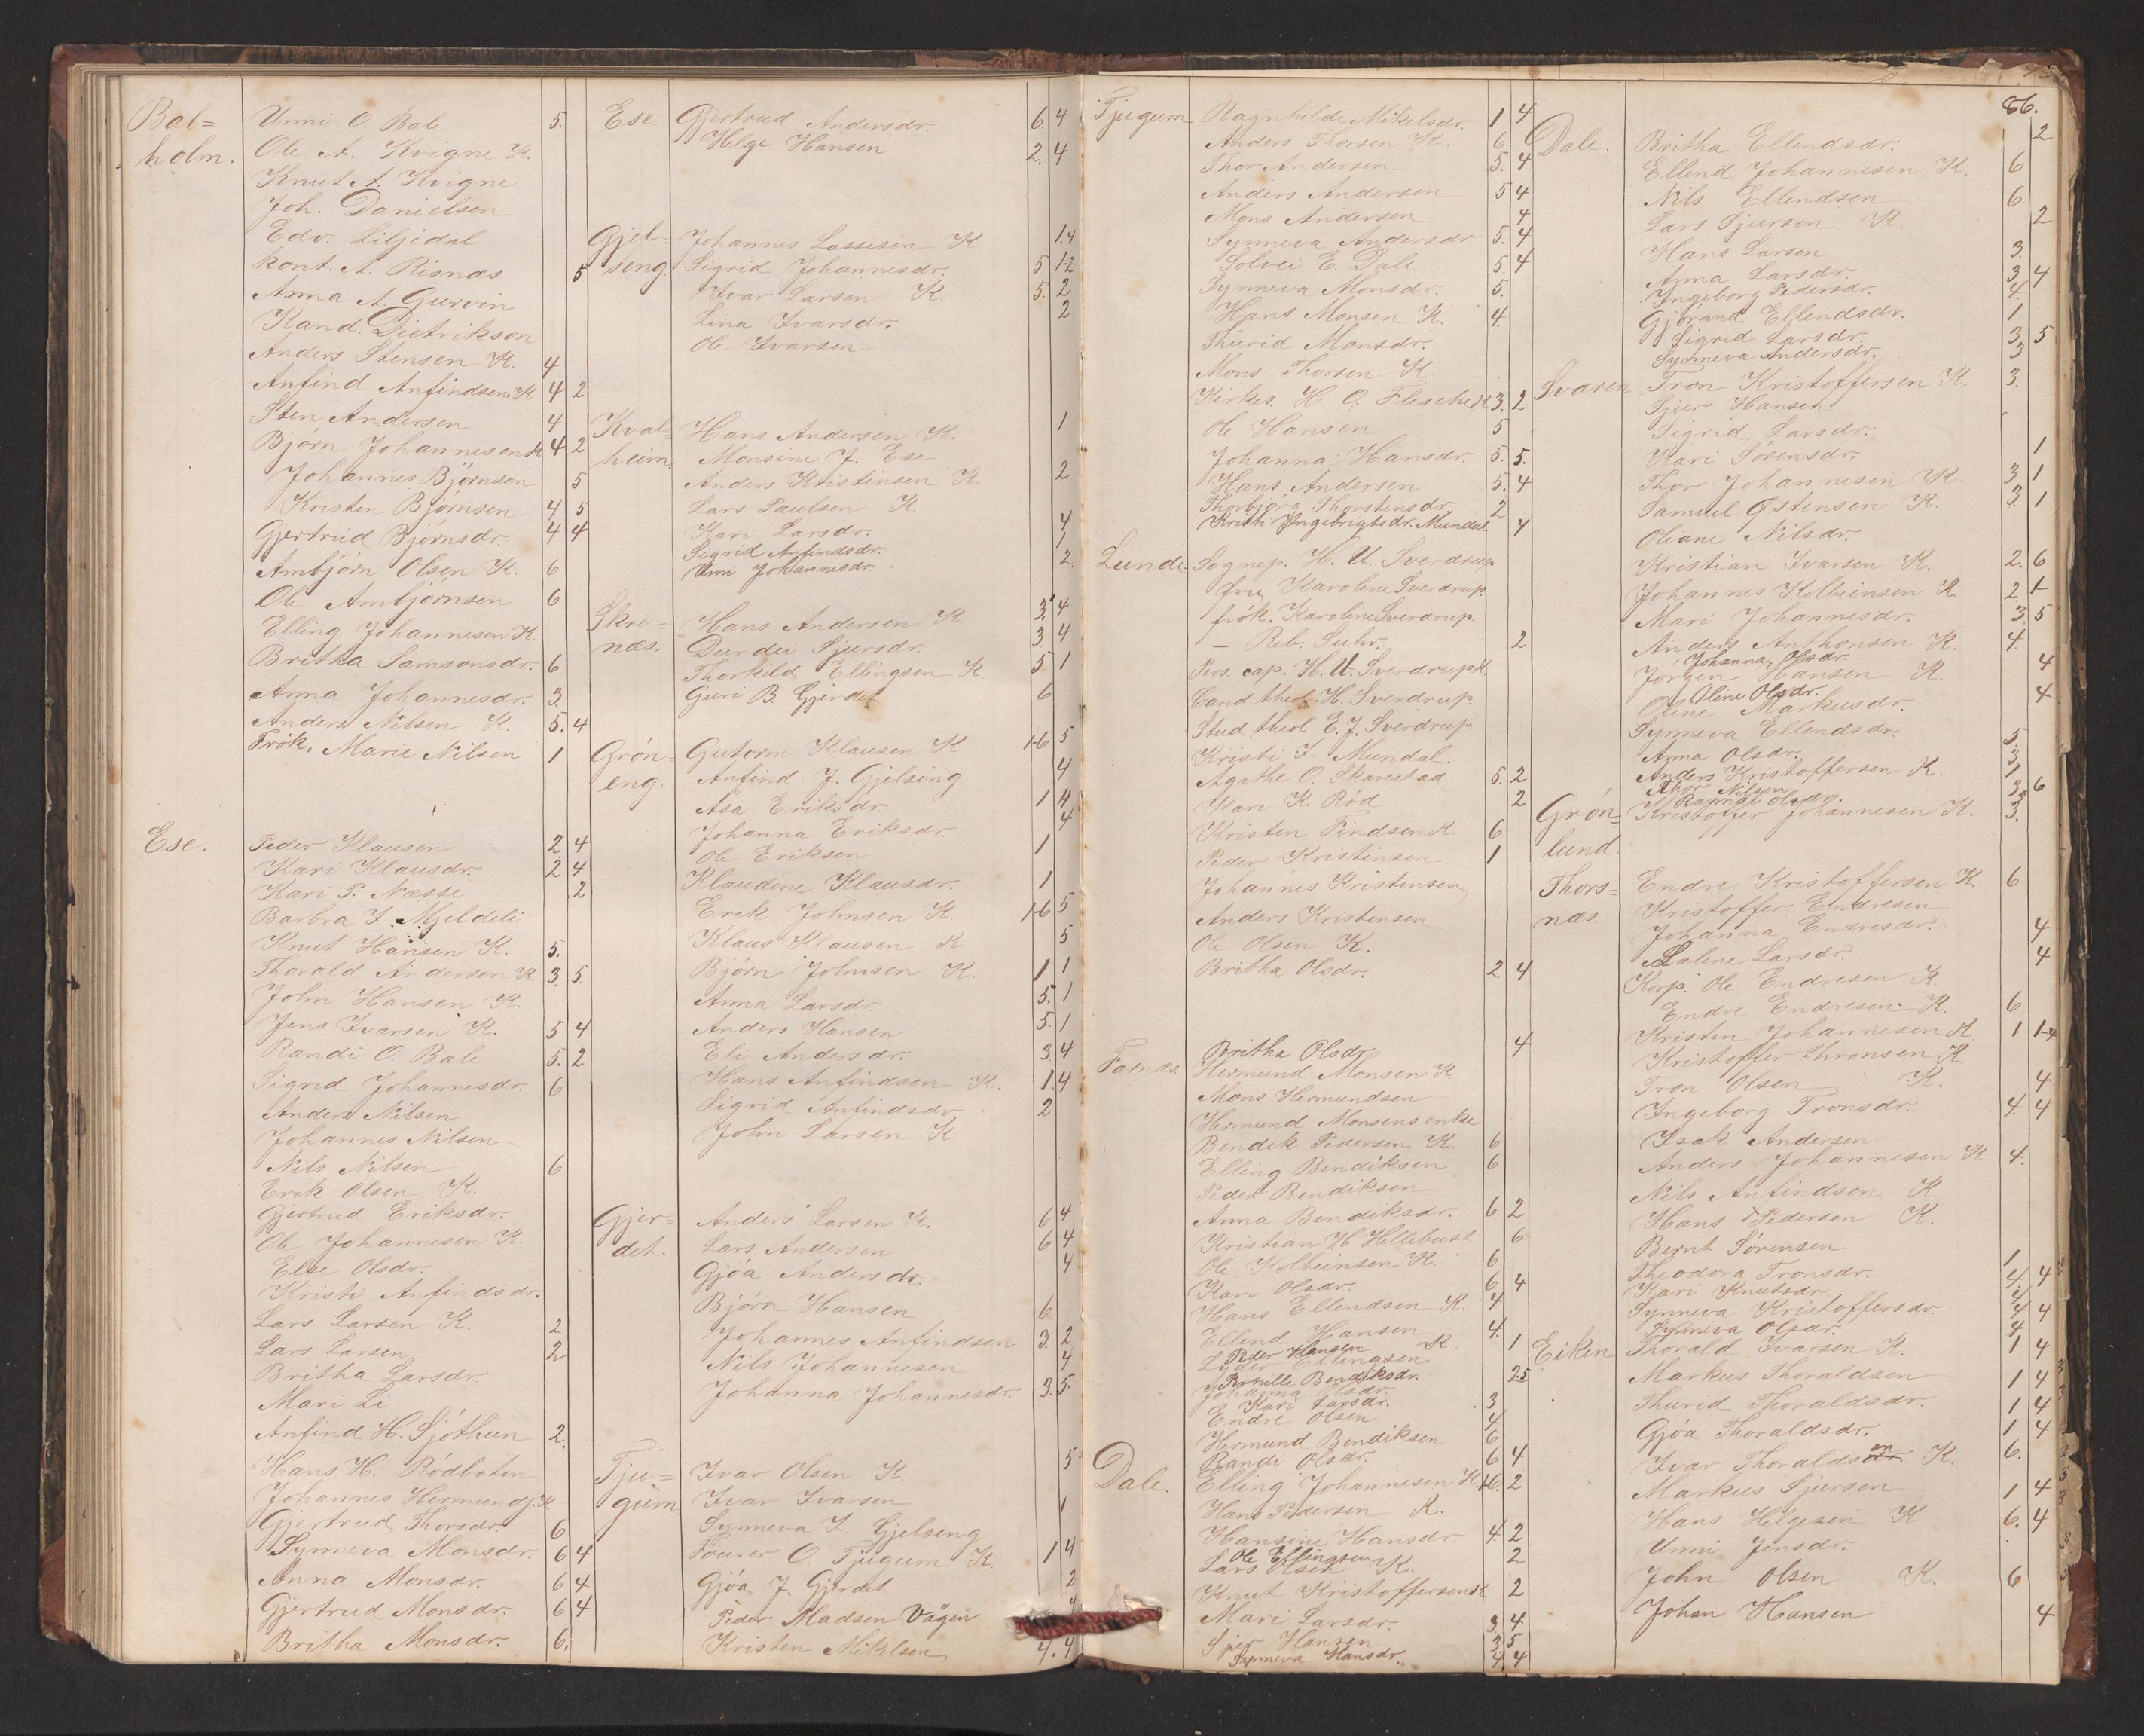 Bal=
holm.
Unni O. Bale 5.
Ole A. Kvigne K.
Knut A. Kvigne
Joh. Danielsen
Edv. Liljedal
kont. A. Risnæs 5
Anna A. Gurvin
Kand. Dietrikson
Anders Stensen K. 4
Anfind Anfindsen K 4 2
Sten Andersen 4
Bjørn Johannesen K 4 2
Johannes Bjørnsen 5
Kristen Bjørnsen 4 5
Gjertrud Bjørnsdr. 4 4
Ambjørn Olsen K. 6
Ole Ambjørnsen 6
Elling Johannesen K.
Britha Samsonsdr. 6
Anna Johannesdr. 3.
Anders Nilsen K. 5. 4
Frøk. Marie Nilsen 1
Ese.
Peder Klausen 2 4
Kari Klausdr. 2 4
Kari P. Næsse 2
Barbra I. Mjeldeli
Knut Hansen K. 5.
Thorald Andersen K. 3. 5.
John Hansen K.
Jens Ivarsen K. 5 4
Randi O. Bale 5. 2
Sigrid Johannesdr. 6
Anders Nilsen
Johannes Nilsen
Nils Nilsen 6
Erik Olsen K.
Gjertrud Eriksdr.
Ole Johannesen K.
Else Olsdr.
Kristi Anfindsdr.
Lars Larsen K. 2
Lars Larsen 2
Britha Larsdr.
Mari Li
Anfind H. Sjøthun 2.
Hans H. Rødboten
Johannes Hermundsen K
Gjertrud Thorsdr. 6
Synneva Monsdr. 6 4
Anna Monsdr. 6 4
Gjertrud Monsdr. 6 4
Britha Monsdr. 6.
Ese.
Gjertrud Andersdr. 6. 4
Helge Hansen 2. 4
Gjel=
seng.
Johannes Lassesen K 1.4
Sigrid Johannesdr. 5 1-2
Ivar Larsen K. 5. 2
Lina Ivarsdr. 2
Ole Ivarsen
Kval=
heim.
Hans Andersen K. 1
Monsine J. Ese
Anders Kristensen K. 2
Lars Paulsen K
Kari Larsdr. 4
Sigrid Anfindsdr. 1
Unni Johannesdr. 2.
Skre=
næs.
Hans Andersen K. 3. 4
Durdei Sjursdr. 3. 4
Thorkild Ellingsen K. 5. 1
Guri B. Gjerdet 6
Grøn=
eng.
Gutorm Klausen K 1-6 5
Anfind J. Gjelseng 4
Åsa Eriksdr. 1 4
Johanna Eriksdr. 4
Ole Eriksen 1
Klaudine Klausdr. 1
Erik Johnsen K. 1-6 5
Klaus Klausen K 5
Bjørn Johnsen K. 1 1
Anna Larsdr. 5. 1
Anders Hansen 5. 1
Eli Andersdr. 3. 4
Hans Anfindsen K. 1. 4
Sigrid Anfindsdr. 2
John Larsen K
Gjer=
det.
Anders Larsen K. 6 4
Lars Andersen 6 4
Gjøa Andersdr. 4
Bjørn Hansen 6
Johannes Anfindsen 3. 2
Nils Johannesen 4
Johanna Johannesdr. 3. 5.
Tju=
gum
Ivar Olsen K. 5
Ivar Ivarsen 1
Synneva I. Gjelseng
Sourer O. Tjugum K. 1 4
Gjøa J. Gjerdet 2
Peder Madsen Vågen
Kristen Miklsen 4. 4
Tjugum
Ragnhilde Mikelsdr. 1 4
Anders Thorsen K. 6
Thor Andersen 5. 4
Anders Andersen 5 4
Mons Andersen 4
Synneva Andersdr. 5. 4
Solvei E. Dale 5. 4
Synneva Monsdr. 5.
Hans Monsen K. 4.
Thurid Monsdr.
Mons Thorsen K.
Kirkes. H. O. Flesche K 3. 2
Ole Hansen 5
Johanna Hansdr. 5. 5.
Hans Andersen 5. 4
Thorbjørg Thorstensdr. 2
Kristi Ingebrigtsdr. Mundal 4
Lunde.
Sognep. H. U. Sverdrup
fru Karoline Sverdrup.
frøk. Karoline Sverdrup
— Reb. Suhr. 2
Pers. cap. H. U. Sverdrup K.
Cand. theol. H. Sverdrup.
Stud. theol E. J. Sverdrup.
Kristi I. Mundal.
Agathe O. Skarestad 5. 2
Kari K. Rød 2
Kristen Findsen K. 6
Peder Kristensen 1
Johannes Kristensen
Anders Kristensen
Ole Olsen K.
Britha Olsdr. 2 4
Britha Olsdr. 4
Farnæs.
Hermund Monsen K.
Mons Hermundsen
Hermund Monsens enke
Bendik Pedersen K. 6
Elling Bendiksen 6
Peder Bendiksen
Anna Bendiksdr. 6 2
Kristian H Hellebust 6
Ole Kolbeinsen K. 6
Kari Olsdr. 6 4
Hans Ellendsen K. 4
Ellend Hansen 4.
Peder Hansen K. 1
Lyder Ellingsen
Pernille Bendiksdr. 2.5
Johanna Olsdr.
Kari Larsdr. 3
Endre Olsen 4.
Hermund Bendiksen 6
Randi Olsdr. 6 4
Dale.
Elling Johannesen K 1-6. 2
Hans Pedersen K.
Hansine Hansdr. 4. 2
Ole Ellingsen 2
Lars Olsen K.
Knut Kristoffersen K 2
Mari Larsdr. 3. 4
Sjur Hansen 3 5
Synneva Hansdr. 4. 4
86.
Dale.
Britha Ellendsdr. 2
Ellend Johannesen K. 6
Nils Ellendsen 6
Lars Sjursen K. 2
Hans Larsen 3.
Anna Larsdr. 3. 4
Ingeborg Pedersdr. 4.
Gjørand Ellendsdr. 1
Sigrid Larsdr. 3. 5
Synneva Andersdr. 3
Svaren
Tron Kristoffersen K. 3.
Sjur Hansen
Sigrid Larsdr.
Kari Sørensdr. 1
Thor Johannesen K. 3. 1
Samuel Østensen K. 3. 1
Oliane Nilsdr.
Kristian Ivarsen K. 2. 6
Johannes Kolbeinsen K 2 1
Mari Johannesdr. 3. 5
Anders Anthonsen K. 4.
Johanna Olsdr.
Jørgen Hansen K. 4
Oline Olsdr.
Oline Markusdr. 4
Synneva Ellendsdr.
Anna Olsdr. 5.
Anders Kristoffersen K. 3.
Thor Nilsen 3. 6
Ragna Olsdr.
Grøn=
lund.
Kristoffer Johannesen K. 3.
Thors=
næs.
Endre Kristoffersen K. 6
Kristoffer Endresen
Johanna Endresdr. 4
Lalene Larsdr. 4
Korp. Ole Endresen K.
Endre Endresen K. 6
Kristen Johannesen K. 1 1-4
Kristoffer Thronsen K.
Tron Olsen K. 4
Ingeborg Tronsdr. 4. 4
Isak Andersen
Anders Johannesen K. 4.
Nils Anfindsen K.
Hans Pedersen K.
Bernt Sørensen
Theodora Tronsdr. 1 4
Kari Knutsdr. 4.
Synneva Kristoffersdr. 4 4
Synneva Olsdr. 4
Eiken
Thorald Ivarsen K. 1 4
Markus Thoraldsen 1 4
Thurid Thoraldsdr. 1 4
Gjøa Thoraldsdr. 1 4
Ivar Thoraldsen K. 6.
Markus Sjursen 1 4
Hans Helgesen K 6. 4
Unni Jensdr.
John Olsen K. 6
Johan Hansen 4